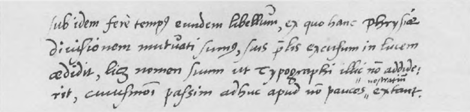 sub idem ferè tempus eundem libellum, ex quo hanc phrysicæ
diuisionem mutuati sumus, suis p̃lis excusum in lucem
ædidit, licet nomen suum ut Typographi illic nō addide-
rit, cuiusmodi passim adhuc apud nō paucos nostratiū extant.